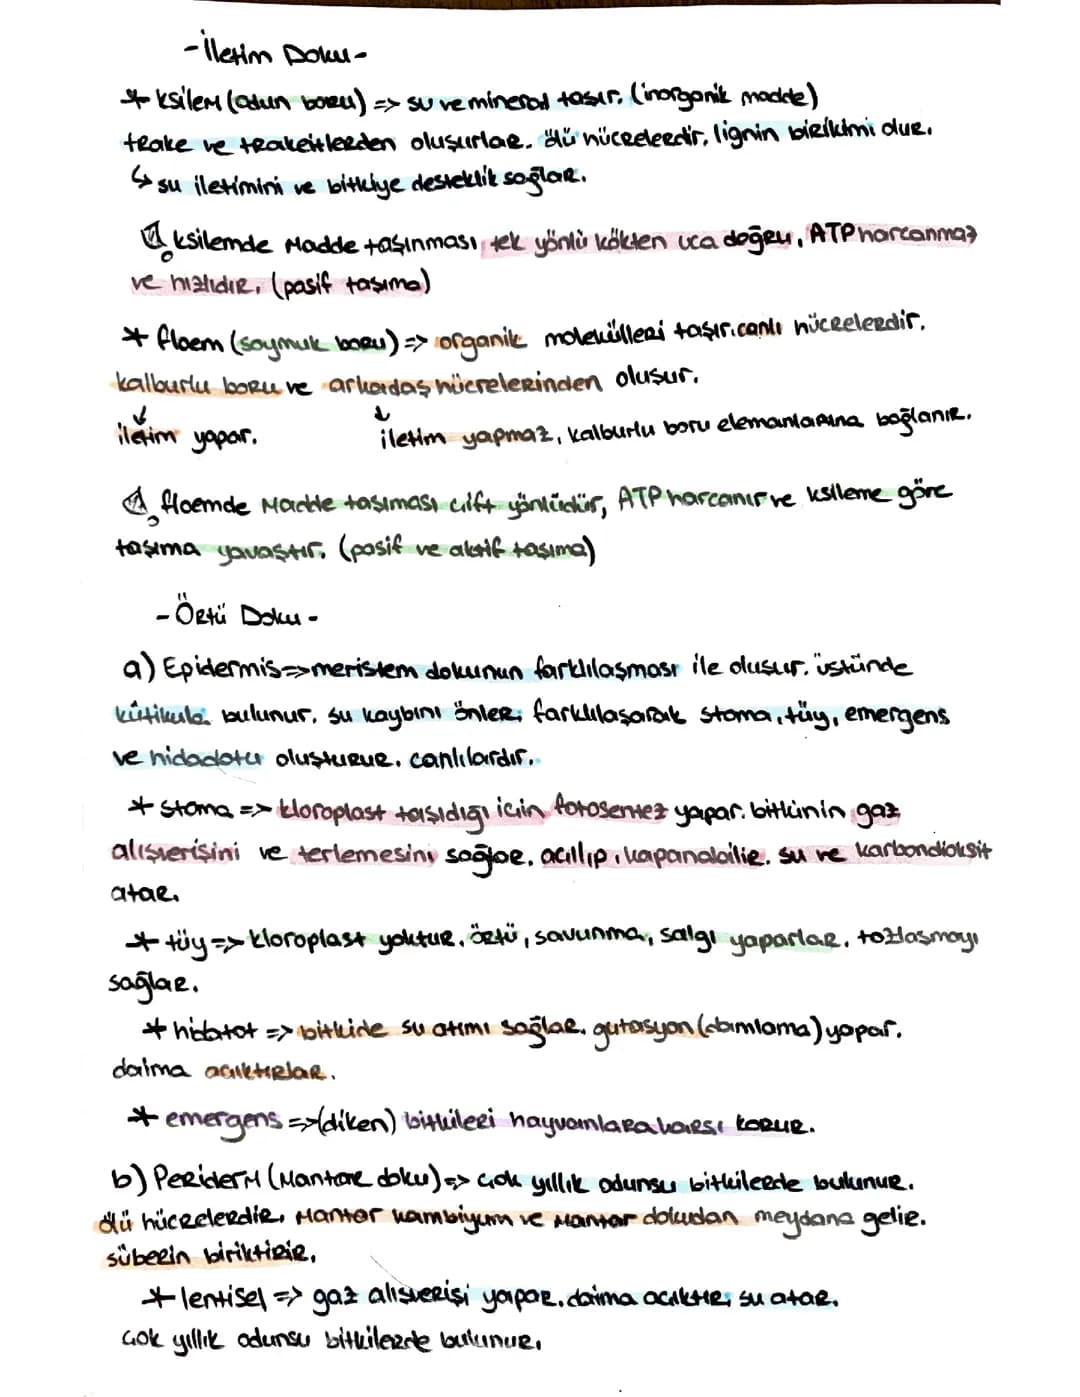 -İletim Doku-
* ksilem (odun boru) => su ve mineral taşır. (inorganik madde)
trake ve trakeitlerden oluşurlar. ölü hücrelerdir, lignin birikimi olur.
↳ su iletimini ve bitkiye desteklik sağlar.
ksilemde madde taşınması, tek yönlü kökten uca doğru, ATP harcanmaz
ve hızlıdır. (pasif taşıma)
* floem (soymuk boru) => organik molekülleri taşır. canlı hücrelerdir.
kalburlu boru ve arkadaş hücrelerinden oluşur.
↓ ↓
iletim yapar. iletim yapmaz, kalburlu boru elemanlarına bağlanır.
floemde madde taşıması çift yönlüdür, ATP harcanır ve ksileme göre
taşıma yavaştır. (pasif ve aktif taşıma)
-Örtü Doku-
a) Epidermis => meristem dokunun farklılaşması ile oluşur. üstünde
kütikula bulunur. su kaybını önler. farklılaşarak stoma, tüy, emergens
ve hidadotu oluşturur. canlılardır.
* stoma => kloroplast taşıdığı için fotosentez yapar. bitkinin gaz
alışverişini ve terlemesini sağlar. açıllıp, kapanabilir. su ve karbondioksit
atar.
* tüy => kloroplast yoktur. örtü, savunma, salgı yaparlar. tozlaşmayı
sağlar.
* hidatot => bitkide su atımı sağlar. gutasyon (damlama) yapar.
daima açıktırlar.
* emergens => (diken) bitkileri hayvanlara karşı korur.
b) Periderm (Mantar doku) => çok yıllık odunsu bitkilerde bulunur.
ölü hücrelerdir, mantar kambiyum ve mantar dokudan meydana gelir.
süberin biriktirir.
* lentisel => gaz alışverişi yapar. daima açıktır, su atar.
çok yıllık odunsu bitkilerde bulunur.